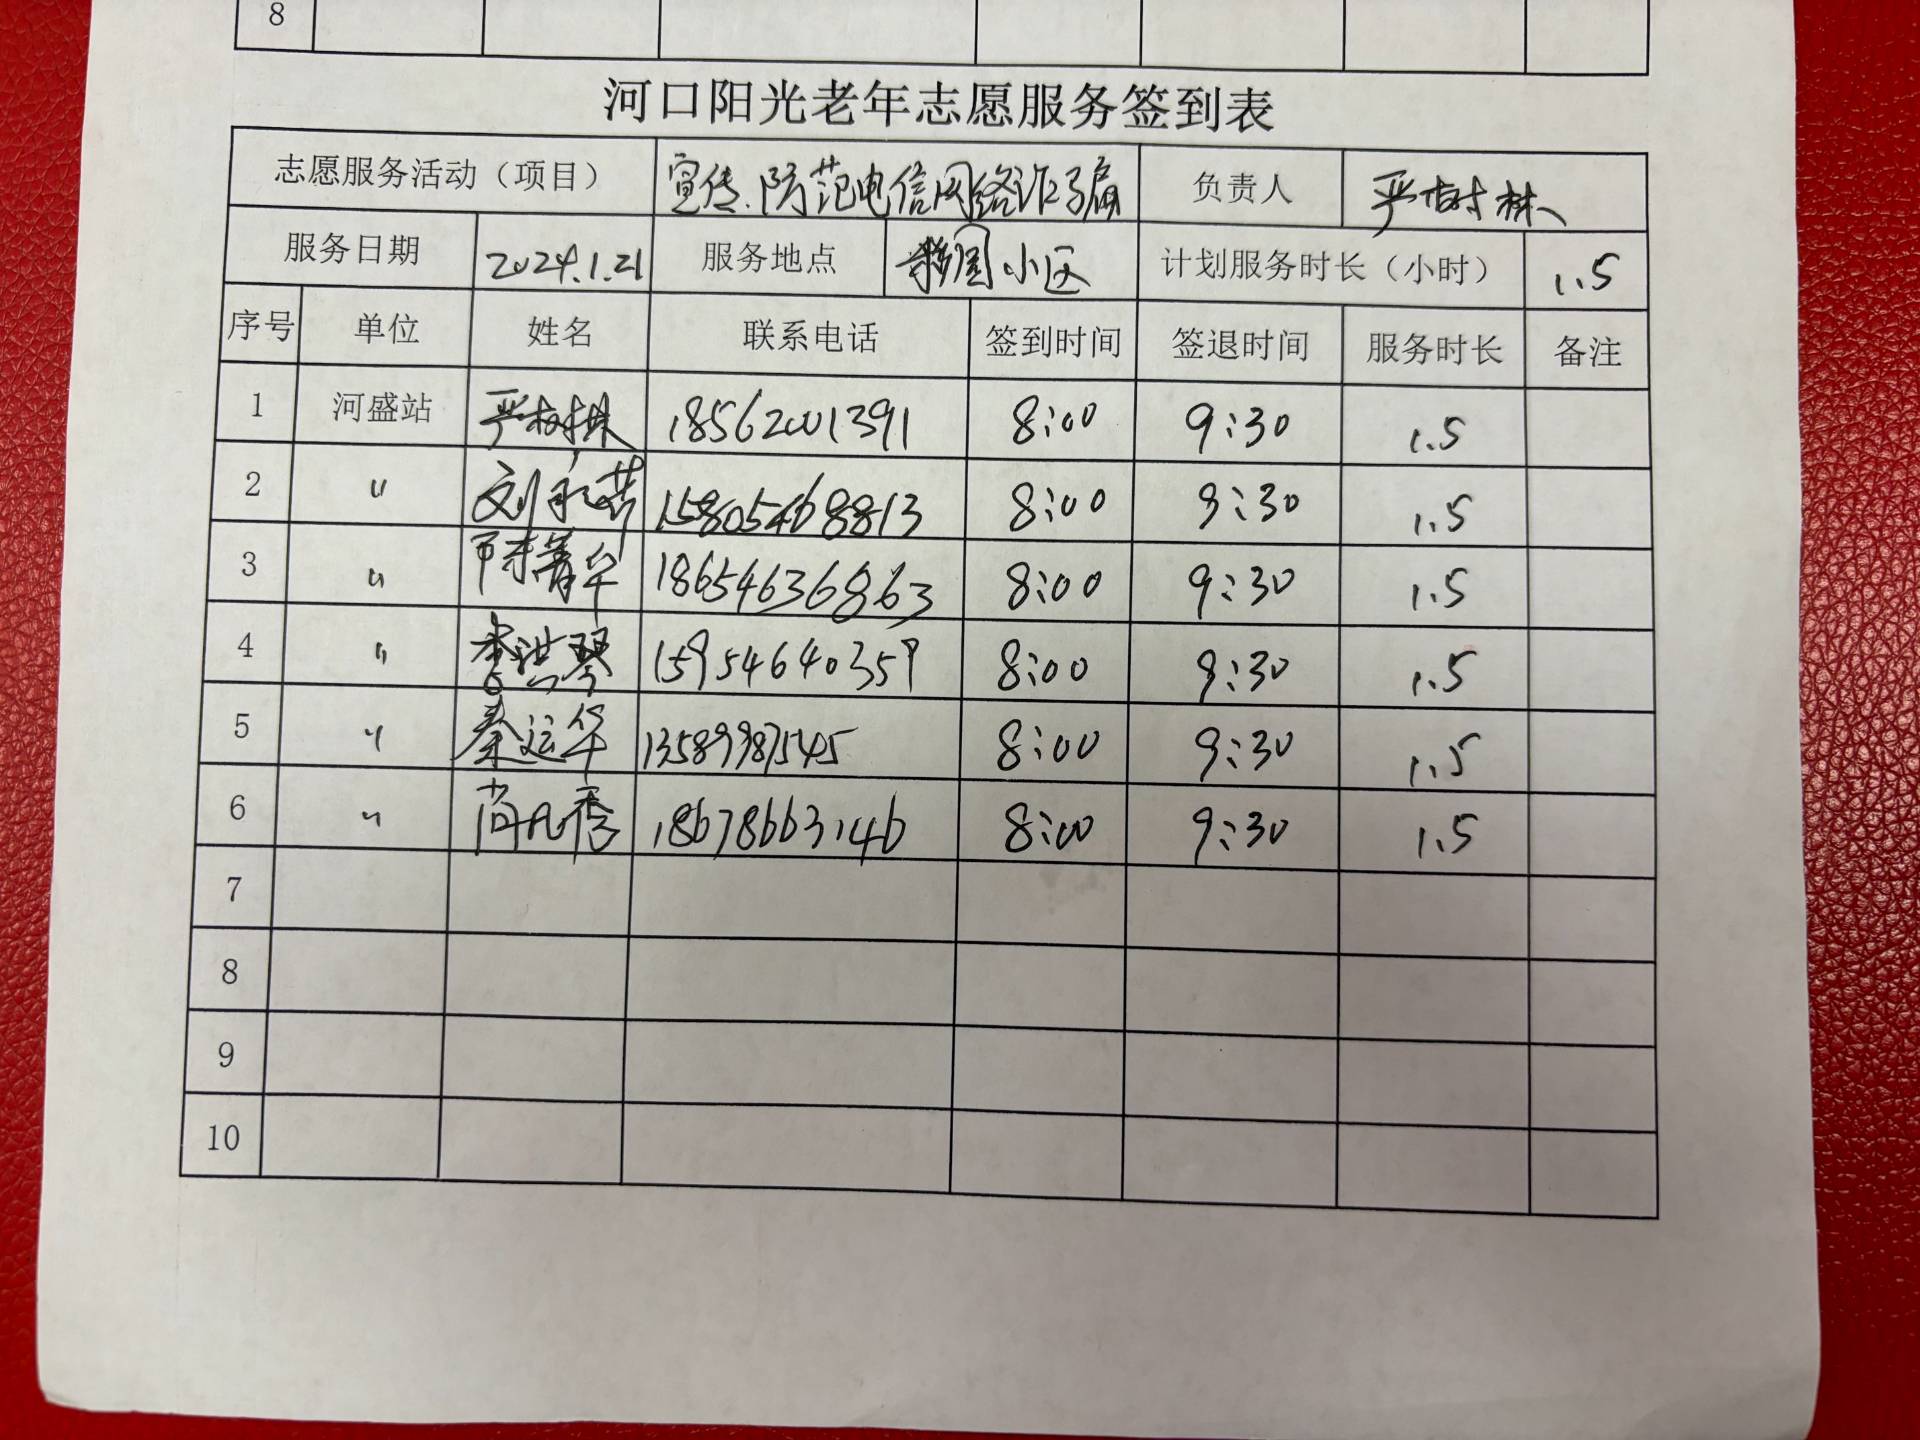 8
河口阳光老年志愿服务签到表
志愿服务活动（项目） 宣传.防范电信网络诈骗 负责人 严树林
服务日期 2024.1.21 服务地点 小区 计划服务时长（小时） 1.5
序号 单位 姓名 联系电话 签到时间 签退时间 服务时长 备注
1 河盛站 严树林 18562001391 8:00 9:30 1.5
2 〃 刘 15805468813 8:00 9:30 1.5
3 〃 陈菁华 18654636863 8:00 9:30 1.5
4 〃 李洪琴 15954640359 8:00 9:30 1.5
5 〃 秦运华 13589987545 8:00 9:30 1.5
6 〃 尚凡秀 18678663146 8:00 9:30 1.5
7
8
9
10